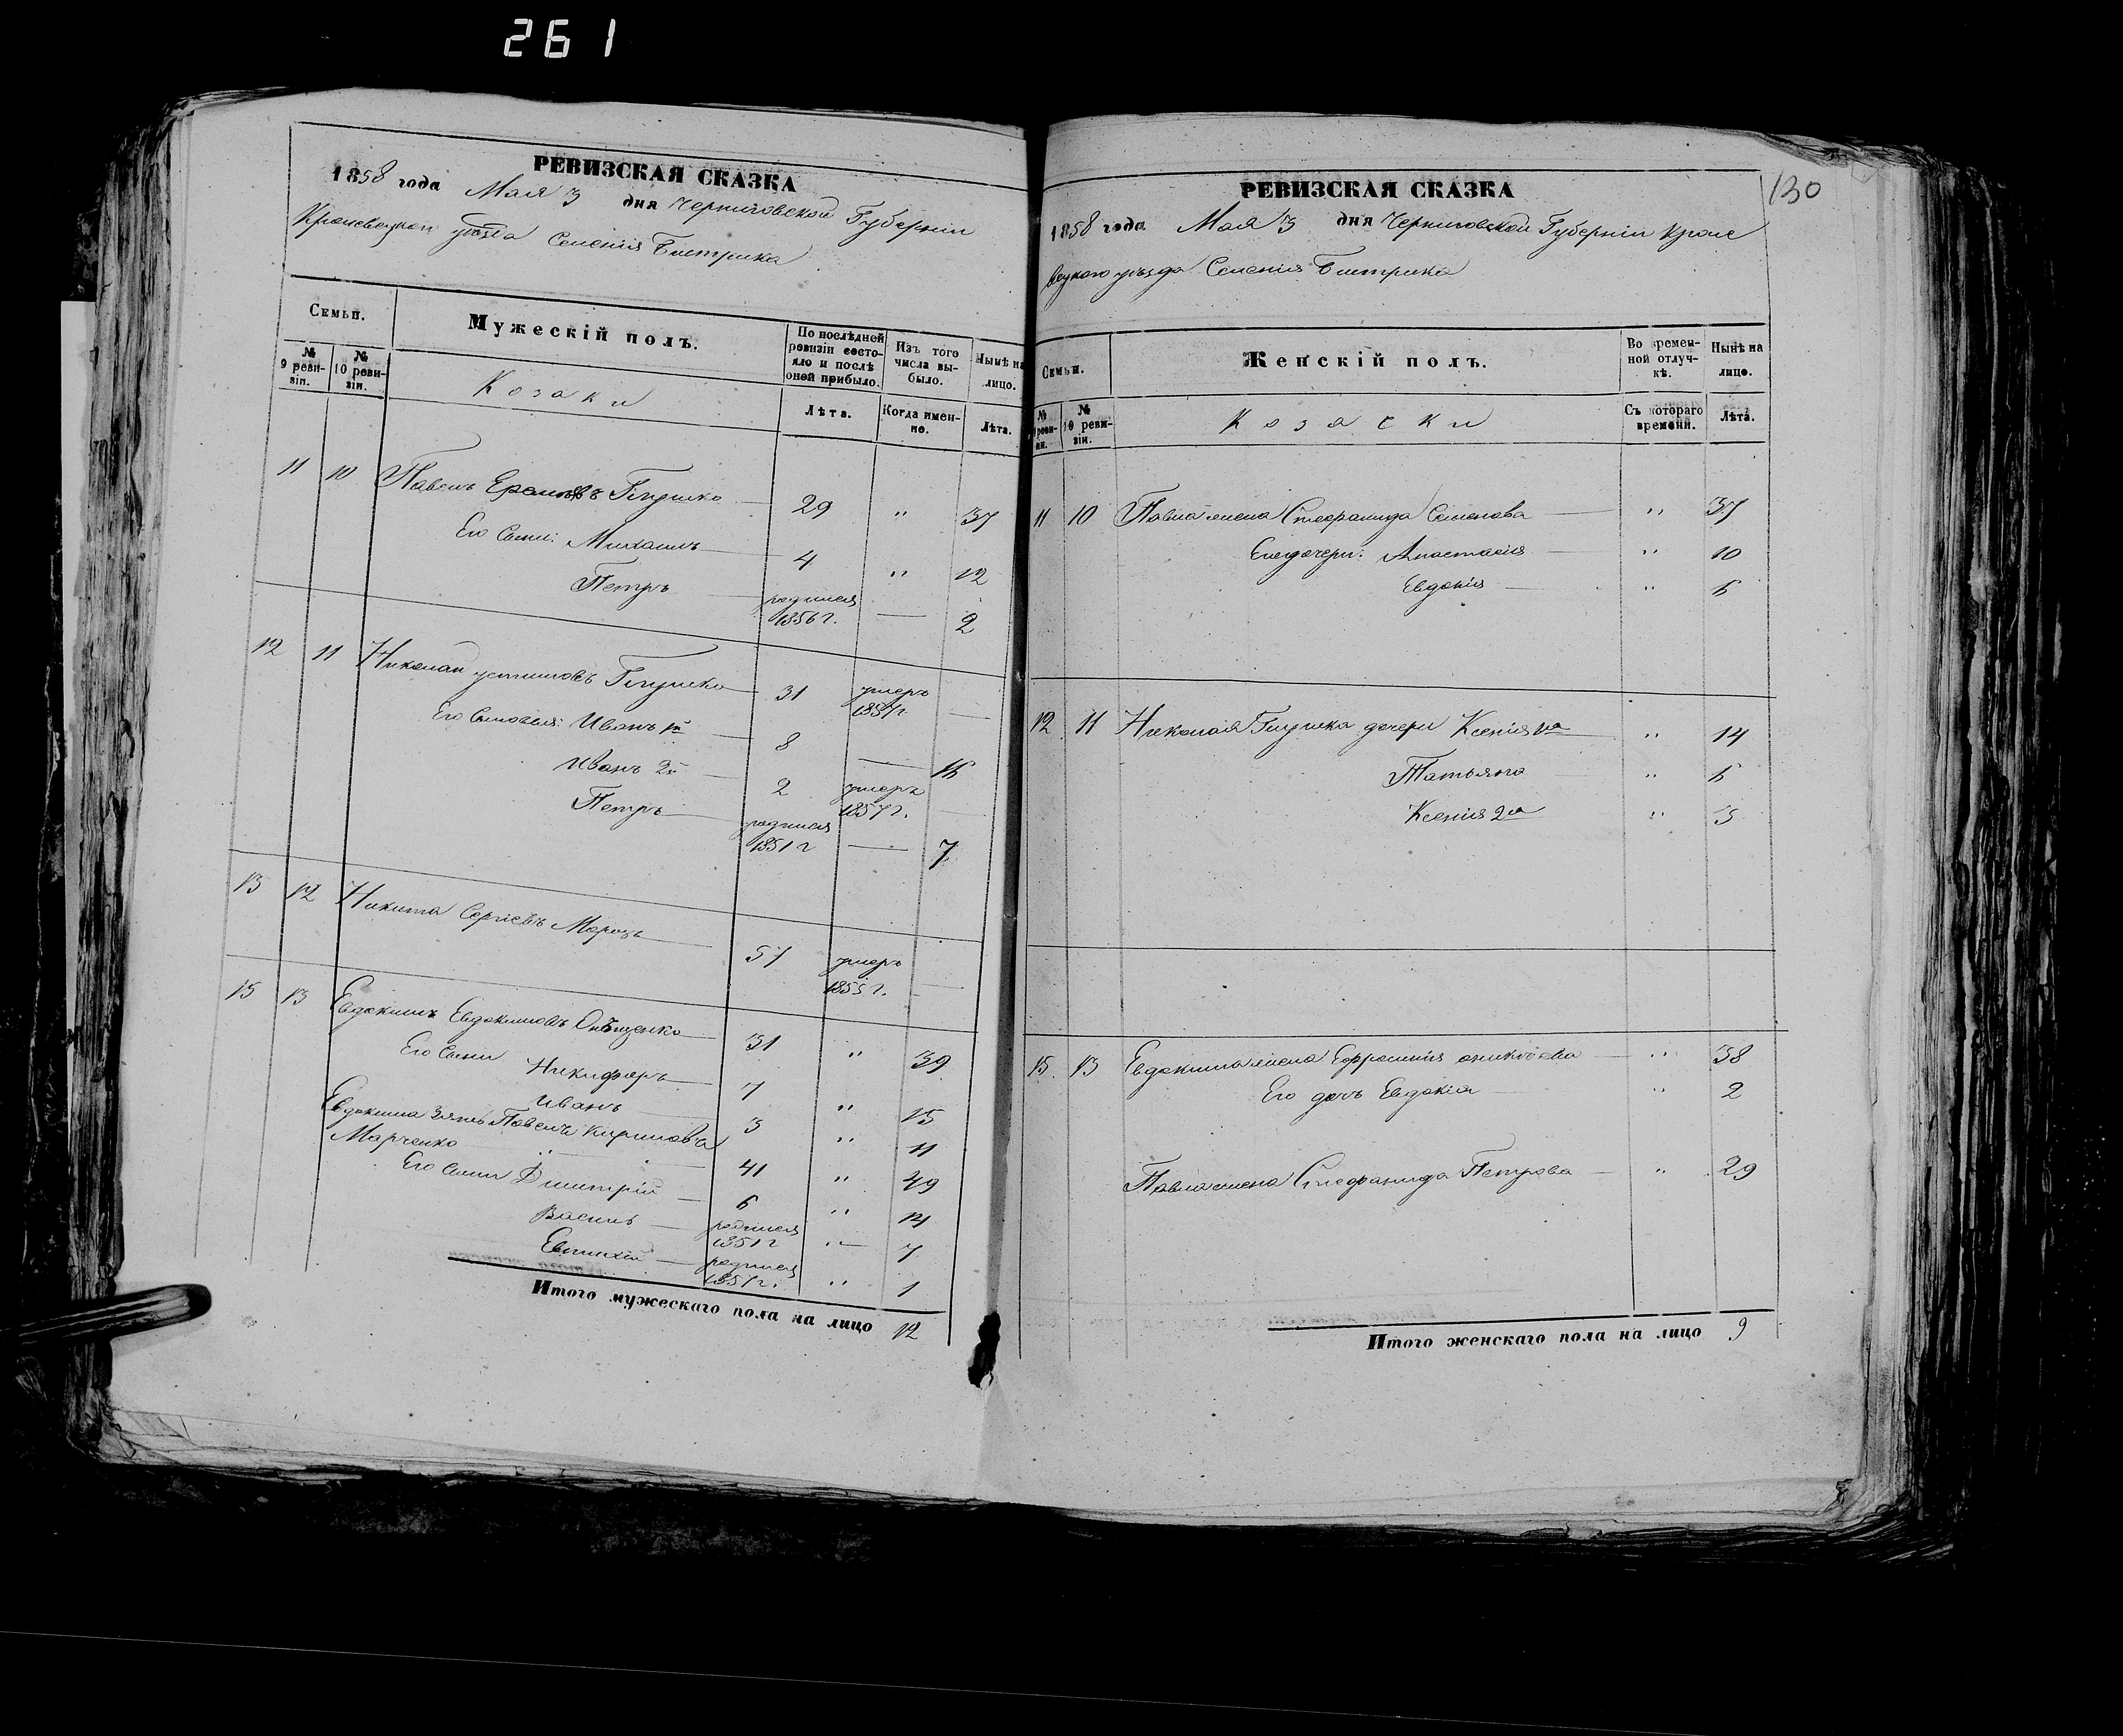 261
РЕВИЗСКАЯ СКАЗКА
1858 года Мая 3 дня Черниговской Губерніи
Кролевецкого уѣзда Селенія Бистрика
Семьи.
Мужескій полъ.
По послѣдней ревизіи состояло и послѣ оной прибыло.
Изъ того числа выбыло.
Нынѣ на лицо.
№ 9 ревизіи.
№ 10 ревизіи.
Козаки
Лѣта.
Когда именно.
Лѣта.
11 10 Павелъ Глушко 29 " 37
Его Сыни: Михаилъ 4 " 12
Петръ родился 1856 г. — 2
12 11 Николай Устиновъ Глушко 31 умеръ 1857 г. —
Его Сыновья: Иванъ 1й 8 — 16
Иванъ 2й 2 умеръ 1857 г. —
Петръ родился 1851 г — 7
13 12 Никита Сергіевъ Морозъ 57 умеръ 1855 г. —
15 13 Евдокимъ Евдокимовъ 31 " 39
Его Сыни Никифоръ 7 " 15
Иванъ 3 " 11
Евдокима Зять Павелъ Кириловъ
Марченко 41 " 49
Его Сыни Димитрій 6 " 14
Василь родился 1851 г " 7
Евтихій родился 1857 г. " 1
Итого мужескаго пола на лицо 12
130
РЕВИЗСКАЯ СКАЗКА
1858 года Мая 3 дня Черниговской Губерніи Кроле
вецкого уѣзда Селенія Бистрика
Семьи.
Женскій полъ.
Во временной отлучкѣ.
Нынѣ на лицо.
№ 9 ревизіи.
№ 10 ревизіи.
Козачки
Съ котораго времени.
Лѣта.
11 10 Павла жена Стефанида Семенова " 37
Его дочери: Анастасія " 10
Евдокія " 6
12 11 Николая Глушка дочери Ксенія 1а " 14
Татьяна " 6
Ксенія 2а " 3
15 13 Евдокима жена Ефросинія " 38
Его дочь Евдокія " 2
Павла жена Стефанида Петрова " 29
Итого женскаго пола на лицо 9